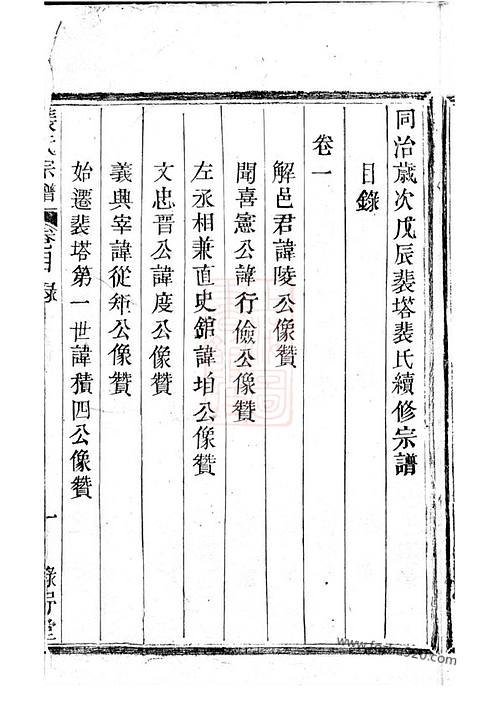 同治歲次戊辰裴塔裴氏續修宗譜
目錄
卷一
解邑君諱陵公像贊
聞喜憲公諱行儉公像贊
左丞相兼直史館諱垍公像贊
文忠晋公諱度公像贊
義興宰諱從矩公像贊
始遷裴塔第一世諱積四公像贊
裴氏宗譜 卷目錄 一